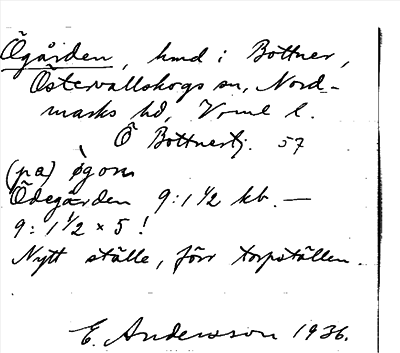 Ögården, hmd i Bottner,
Östervallskogs sn, Nord-
marks hd, Vrml l.
Ö Bottnertj. 57
(pa) øgorn
Ödegården 9:1 1/2 kb. —
9:1 1/2 × 5!
Nytt ställe, förr torpställen.
E. Andersson 1936.